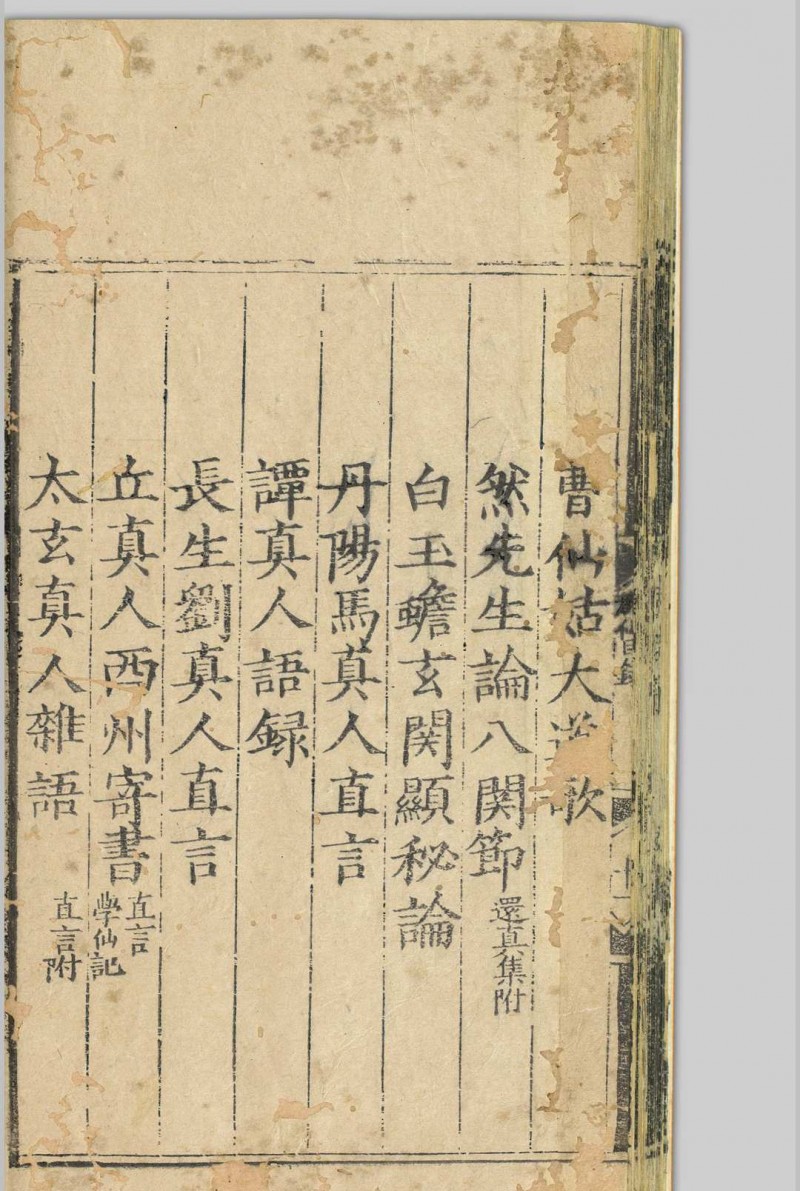 曹仙姑大道歌
然先生論八関節 還真集附
白玉蟾玄関顯秘論
丹陽馬真人直言
譚真人語録
長生劉真人直言
丘真人西州寄書 直言 學仙記
太玄真人雜語 直言附